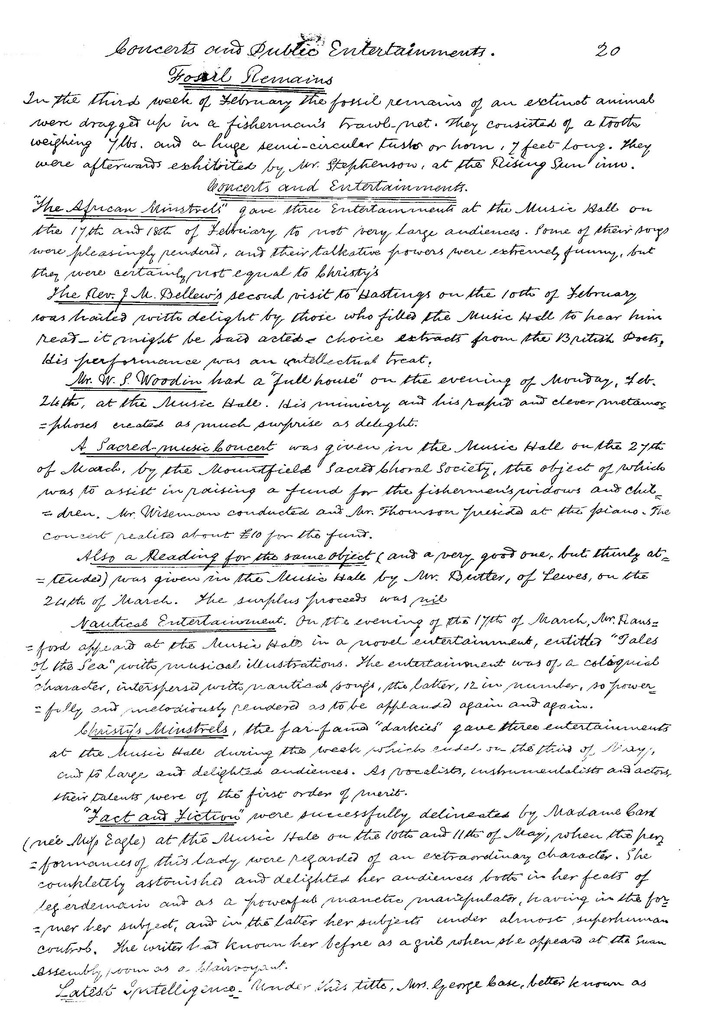 Concerts and Public Entertainments. 20
Fossil Remains
In the third week of February the fossil remains of an extinct animal
were dragged up in a fisherman's trawl-net. They consisted of a tooth
weighing 7lbs. and a huge semi-circular tusk or horn, 7 feet long. They
were afterwards exhibited by Mr. Stephenson, at the Rising Sun inn.
Concerts and Entertainments.
"The African Minstrels" gave three Entertainments at the Music Hall on
the 17th and 18th of February to not very large audiences. Some of their songs
were pleasingly rendered, and their talkative powers were extremely funny, but
they were certainly not equal to Christy's
The Rev. J. M. Bellew's second visit to Hastings on the 10th of February
was hailed with delight by those who filled the Music Hall to hear him
read – it might be said acted – choice extracts from the British Poets,
His performance was an intellectual treat.
Mr. W. S. Woodin had a "full house" on the evening of Monday, Feb.
24th, at the Music Hall. His mimicry and his rapid and clever metamor=
=phoses created as much surprise as delight.
A Sacred-music Concert was given in the Music Hall on the 27th
of March, by the Mountfield Sacred Choral Society, the object of which
was to assist in raising a fund for the fishermen's widows and chil=
=dren. Mr. Wiseman conducted and Mr. Thomson presided at the piano. The
concert realised about £10 for the fund.
Also a Reading for the same object (and a very good one, but thinly at=
=tended) was given in the Music Hall by Mr. Butter, of Lewes, on the
24th of March. The surplus proceeds was nil
Nautical Entertainment. On the evening of the 17th of March, Mr. Rans=
=ford appeared at the Music Hall in a novel entertainment, entitled "Tales
of the Sea" with musical illustrations. The entertainment was of a coloquial
character, interspersed with nautical songs, the latter, 12 in number, so power=
=fully and melodiously rendered as to be applauded again and again.
Christy's Minstrels, the far-famed "darkies" gave three entertainments
at the Music Hall during the week which ended on the third of May,
and to large and delighted audiences. As vocalists, instrumentalists and actors,
their talents were of the first order of merit.
"Fact and Fiction" were successfully delineated by Madame Card
(née Miss Eagle) at the Music Hall on the 10th and 11th of May, when the per
=formances of this lady were regarded of an extraordinary character. She
completely astonished and delighted her audiences both in her feats of
legerdemain and as a powerful magnetic manipulator, having in the for=
=mer her subject, and in the latter her subjects under almost superhuman
control. The writer had known her before as a girl when she appeared at the Swan
Assembly room as a clairvoyant.
Latest Intelligence. Under this title, Mrs. George Case, better known as